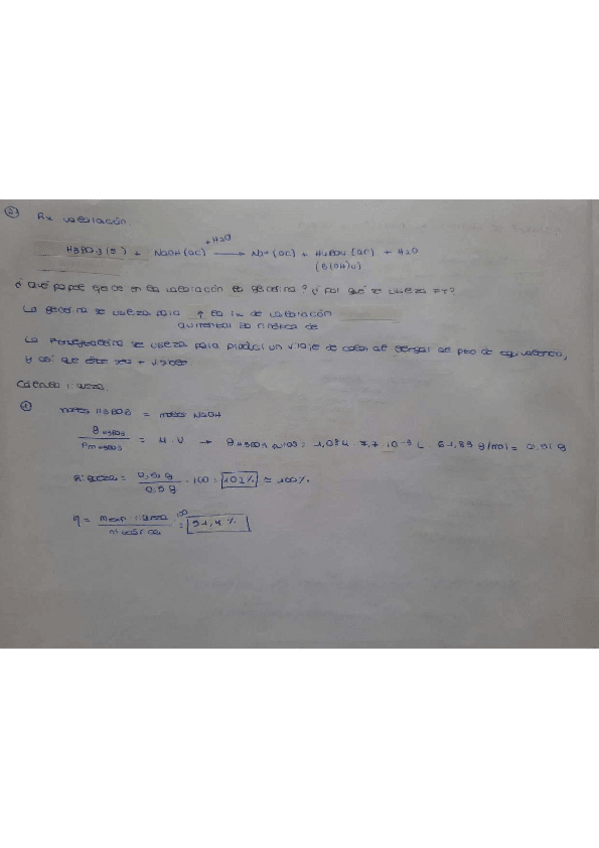 ② Rx valoración.
H3BO3(s) + NaOH(ac) +H2O → Na+(ac) + H4BO4-(ac) + H2O
(B(OH)4)
¿Qué papel ejerce en la valoración la glicerina? ¿Por qué se utiliza FF?
La glicerina se utiliza para ↑ la de valoración
aumentar la cinética de
La Fenolftaleína se utiliza para producir un viraje de color al llegar al pto de equivalencia,
y así que éste sea + visible.
Cálculo riqueza.
① moles H3BO3 = moles NaOH
g H3BO3 / Pm H3BO3 = M · V → g H3BO3 1,084 · 7,7 · 10-3 L · 61,83 g/mol = 0,51 g
Riqueza = 0,51 g / 0,5 g · 100 = 102% ≈ 100%
η = mexp · riqueza / m teórica · 100 = 51,4%